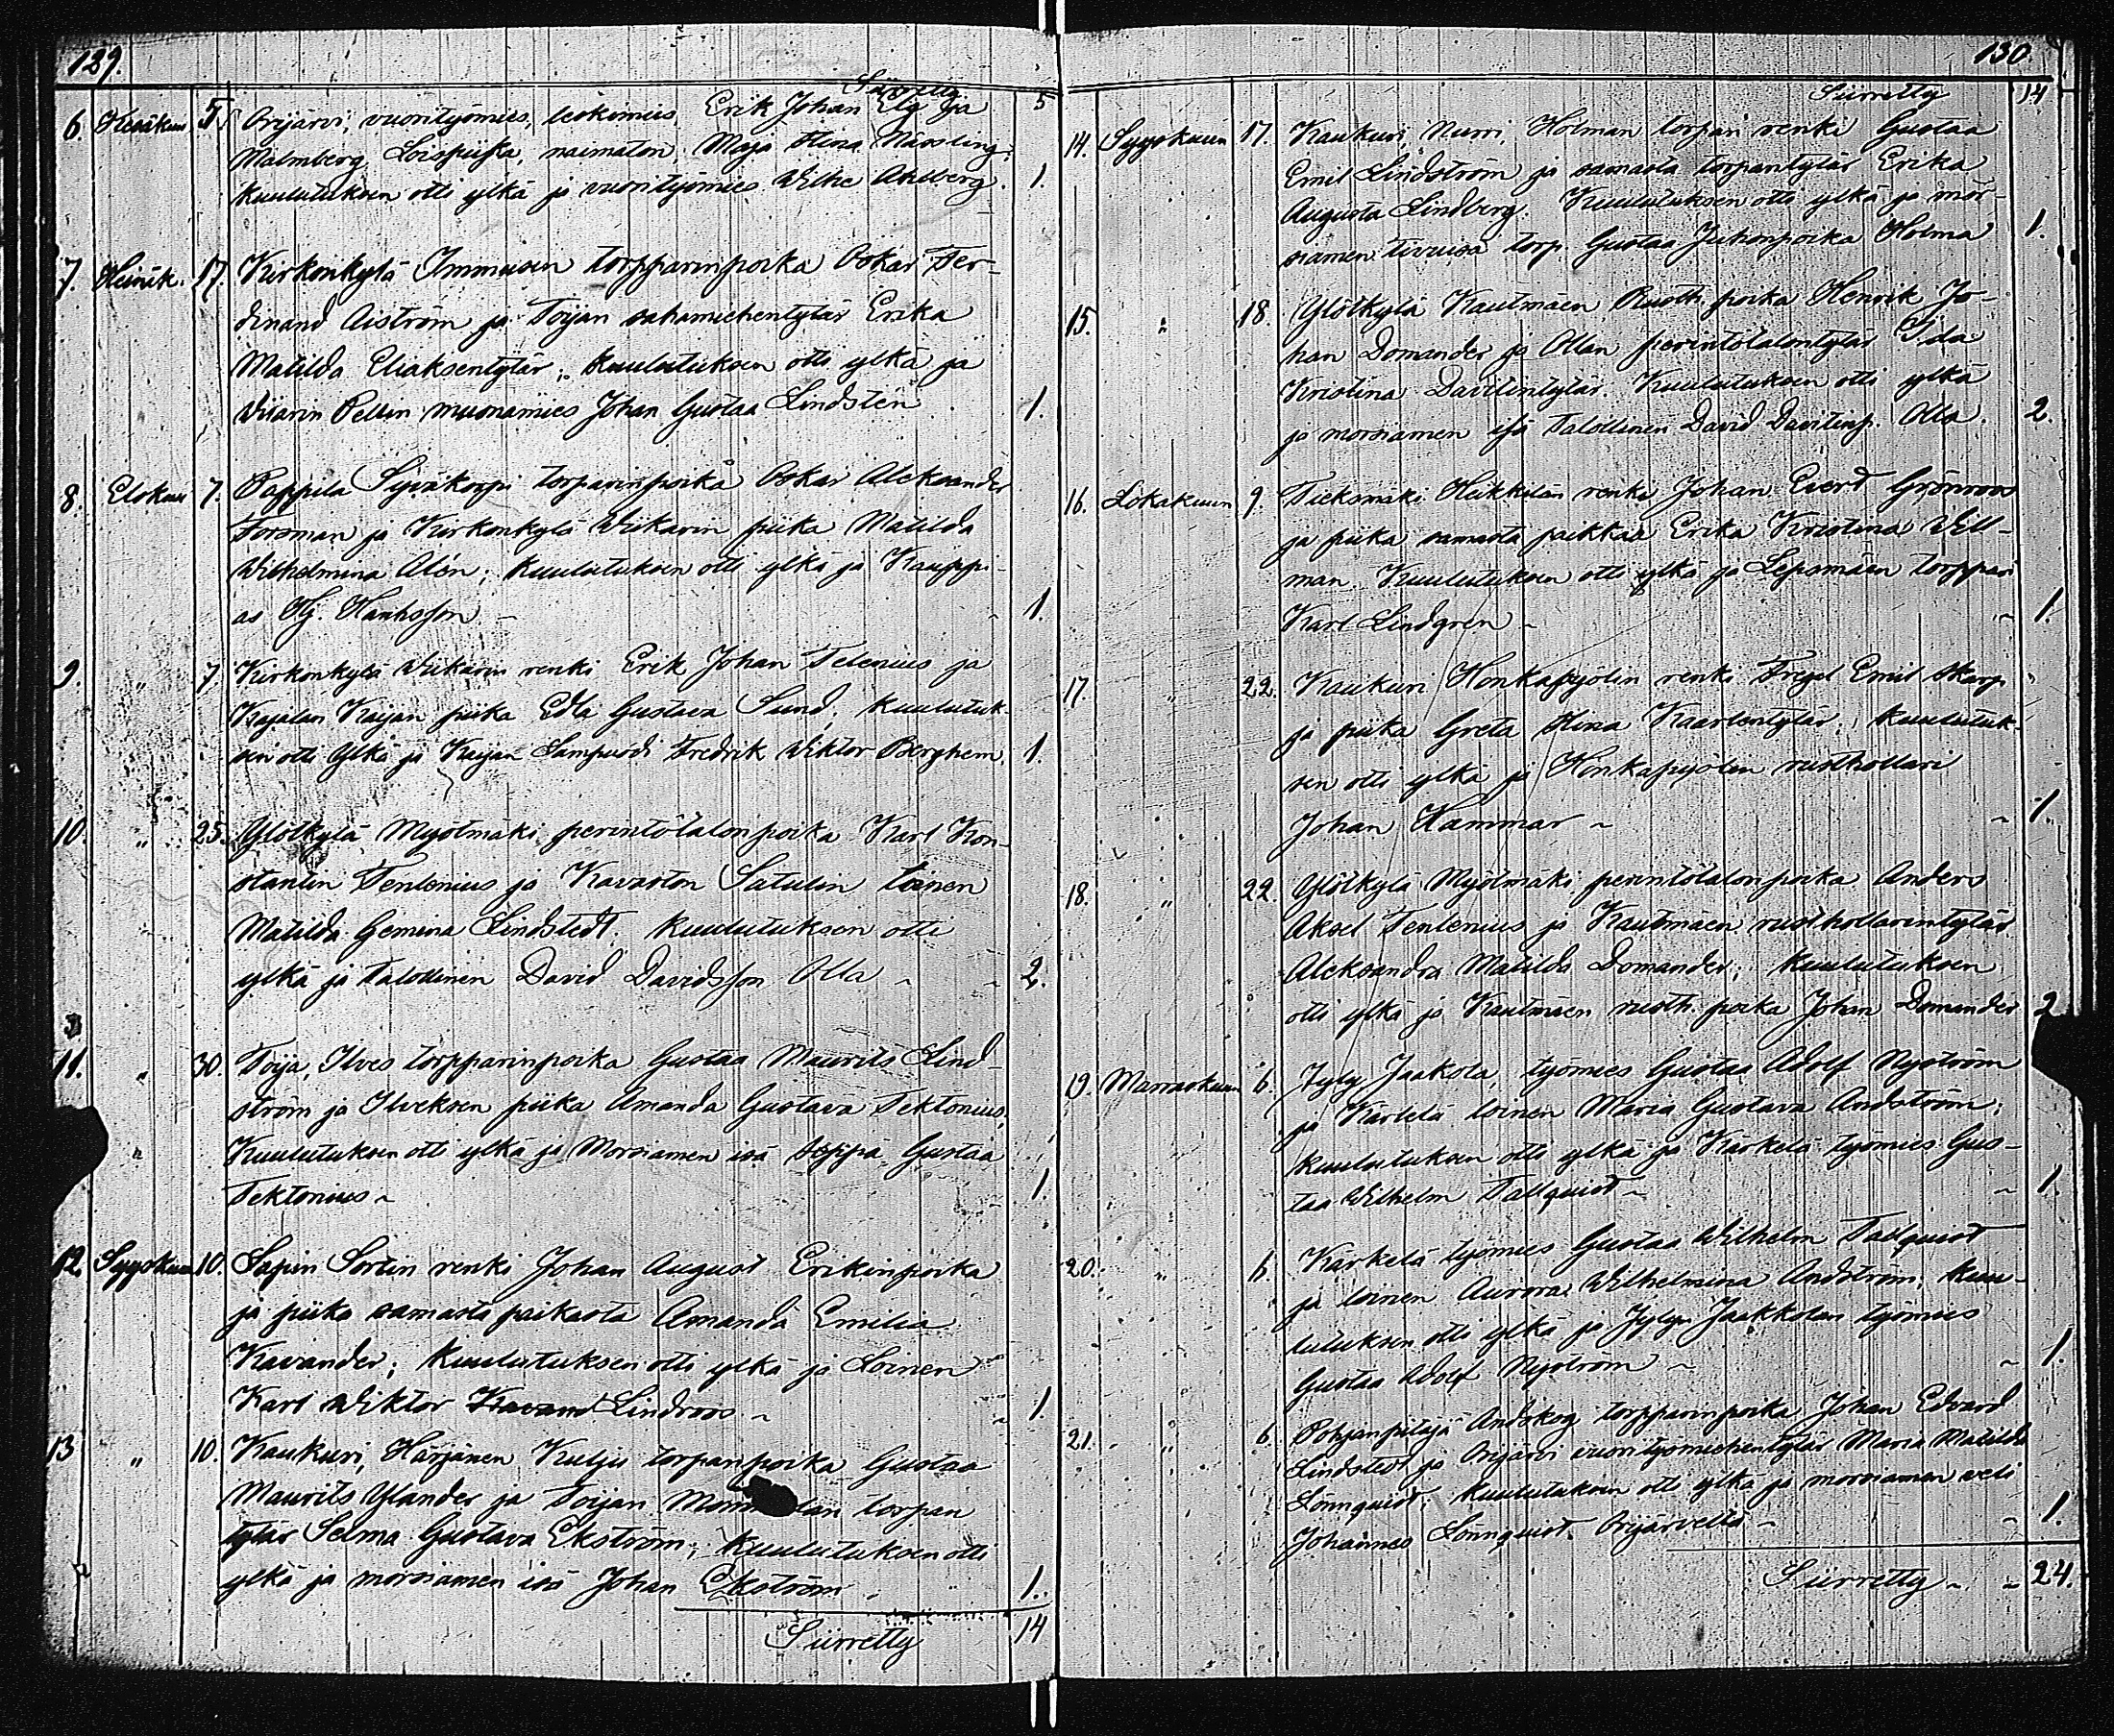 129.
Siirretty 5
6. Kesäkuu 5 Orijärvi, vuorityömies, leskimies, Erik Johan Elg ja
Malmberg Loispiika, naimaton, Maja Stina Nässling;
kuulutuksen otti ylkä ja vuorityömies Wilhe Ahlberg. 1.
7. Heinäk. 17. Kirkonkylä Immusen torpparinpoika Oskar Fer-
dinand Aiström ja Toijan sahamiehentytär Erika
Matilda Eliaksentytär; kuulutuksen otti ylkä ja
Wiarin Pellin muonamies Johan Gustaa Lindstén 1.
8. Elokuu 7. Pappila Syväkorpi torparinpoika Oskar Aleksander
Forsman ja Kirkonkylä Wikarin piika Matilda
Wilhelmina Alén; kuulutuksen otti ylkä ja Kauppi-
as Hj. Hanhsson 1.
9. " 7. Kirkonkylä Wikarin renki Erik Johan Telenius ja
Kajalan Kaijan piika Edla Gustava Sund, kuulutuk-
sen otti ylkä ja Kaijan Lampuodi Fredrik Wiktor Berghem. 1.
10. " 25. Ylötkylä Myötmäki perintötalon poika Karl Kon-
stantin Tenlenius ja Kavaston Satulin loinen
Matilda Gemina Lindstedt. kuulutuksen otti
ylkä ja Talollinen David Davidsson Olla 2.
11. " 30. Toija, Ilves torpparinpoika Gustaa Maurits Lind-
ström ja Ilveksen piika Amanda Gustava Tektonius,
Kuulutuksen otti ylkä ja Morsiamen isä seppä Gustaa
Tektonius 1.
12. Syyskuu 10. Lapin Sortin renki Johan August Erikinpoika
ja piika samasta paikasta Amanda Emilia
Kavander; kuulutuksen otti ylkä ja Loinen
Karl Wiktor Kavand Lindroos 1.
13 " 10. Kaukuri, Härjänen Kuljis torpanpoika Gustaa
Maurits Ylander ja Toijan torpan
tytär Selma Gustava Ekström; Kuulutuksen otti
ylkä ja morsiamen isä Johan Ekström 1.
Siirretty 14
130.
Siirretty 14
14. Syyskuun 17. Kaukuri, Nurri, Holman torpari renki Gustaa
Emil Lindström ja samasta torpantytär Erika
Augusta Lindberg. Kuulutuksen otti ylkä ja mor-
siamen torp. Gustaa Juhonpoika Holma 1.
15. " 18. Ylötkylä Kautmäen Rusth. poika Henrik Jo-
han Domander ja Ollan perintötalontytär Ida
Kristina Davitintytär. Kuulutuksen otti ylkä
ja morsiamen isä Talollinen David Davitinp. Olla. 2.
16. Lokakuun 9. Tieksmäki Heikkilän renki Johan Everd Grönroos
ja piika samasta paikkaa Erika Kristina Well-
man. Kuulutuksen otti ylkä ja Lepsmäen torppari
Karl Lindgrén 1.
17. " 22. Kaukuri Honkapyölin renki Emil Skarp
ja piika Greta Stina Kaarlentytär; kuulutuk-
sen otti ylkä ja Honkapyölin rusthollari
Johan Hammar 1.
18. " 22. Ylötkylä Myötmäki perintötalon poika Anders
Aksel Tenlenius ja Kautmäen rusthollarintytär
Aleksandra Matilda Domander; kuulutuksen
otti ylkä ja Kautmäen rusth. poika Johan Domander 2
19. Marraskuun 6. Jyly, Jaakola, työmies Gustaa Adolf Nyström
ja Kärkelä loinen Maria Gustava Andström;
kuulutuksen otti ylkä ja Kärkelä työmies Gus-
taa Wilhelm Tallquist 1.
20. " 6. Kärkelä työmies Gustaa Wilhelm Tallquist
ja loinen Aurora Wilhelmina Andström; kuu-
lutuksen otti ylkä ja Jylyn Jaakkolan työmies
Gustaa Adolf Nyström 1.
21. " 6. Pohjanpitäjä Andskog torpparinpoika Johan Edvard
Lindstedt ja Orijärvi vuorityömiehentytär Maria Matilda
Lönnquist; kuulutuksen otti ylkä ja morsiaman veli
Johannes Lönnquist Orijärveltä 1.
Siirretty 24.